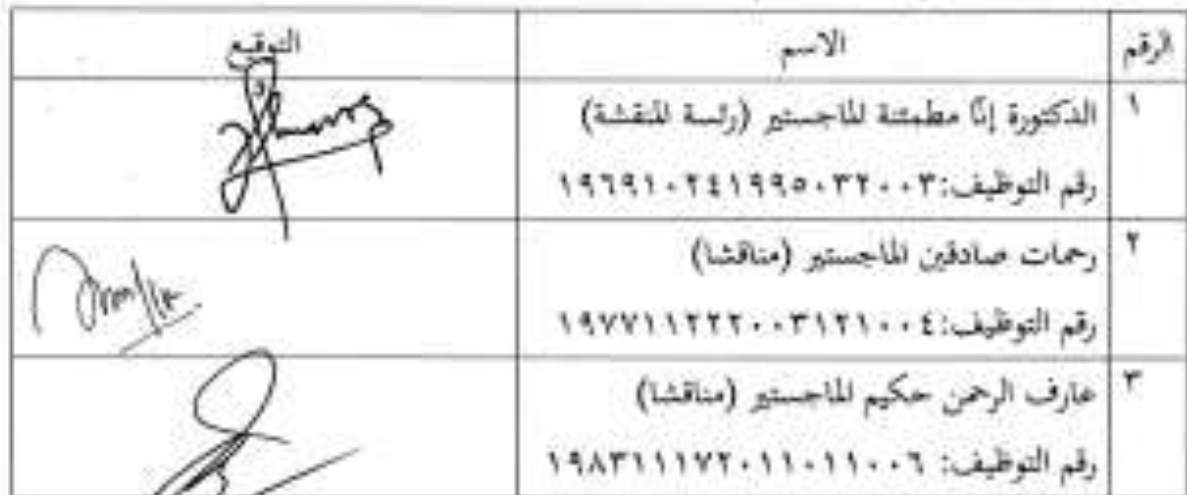 الرقم الاسم التوقيع
١ الدكتورة إنّا مطمئنة الماجستير (رئسة المنقشة)
رقم التوظيف:١٩٦٩١٠٢٤١٩٩٥٠٣٢٠٠٣
٢ رحمات صادقين الماجستير (مناقشا)
رقم التوظيف:١٩٧٧١١٢٢٢٠٠٣١٢١٠٠٤
٣ عارف الرحمن حكيم الماجستير (مناقشا)
رقم التوظيف: ١٩٨٣١١١٧٢٠١١٠١١٠٠٦